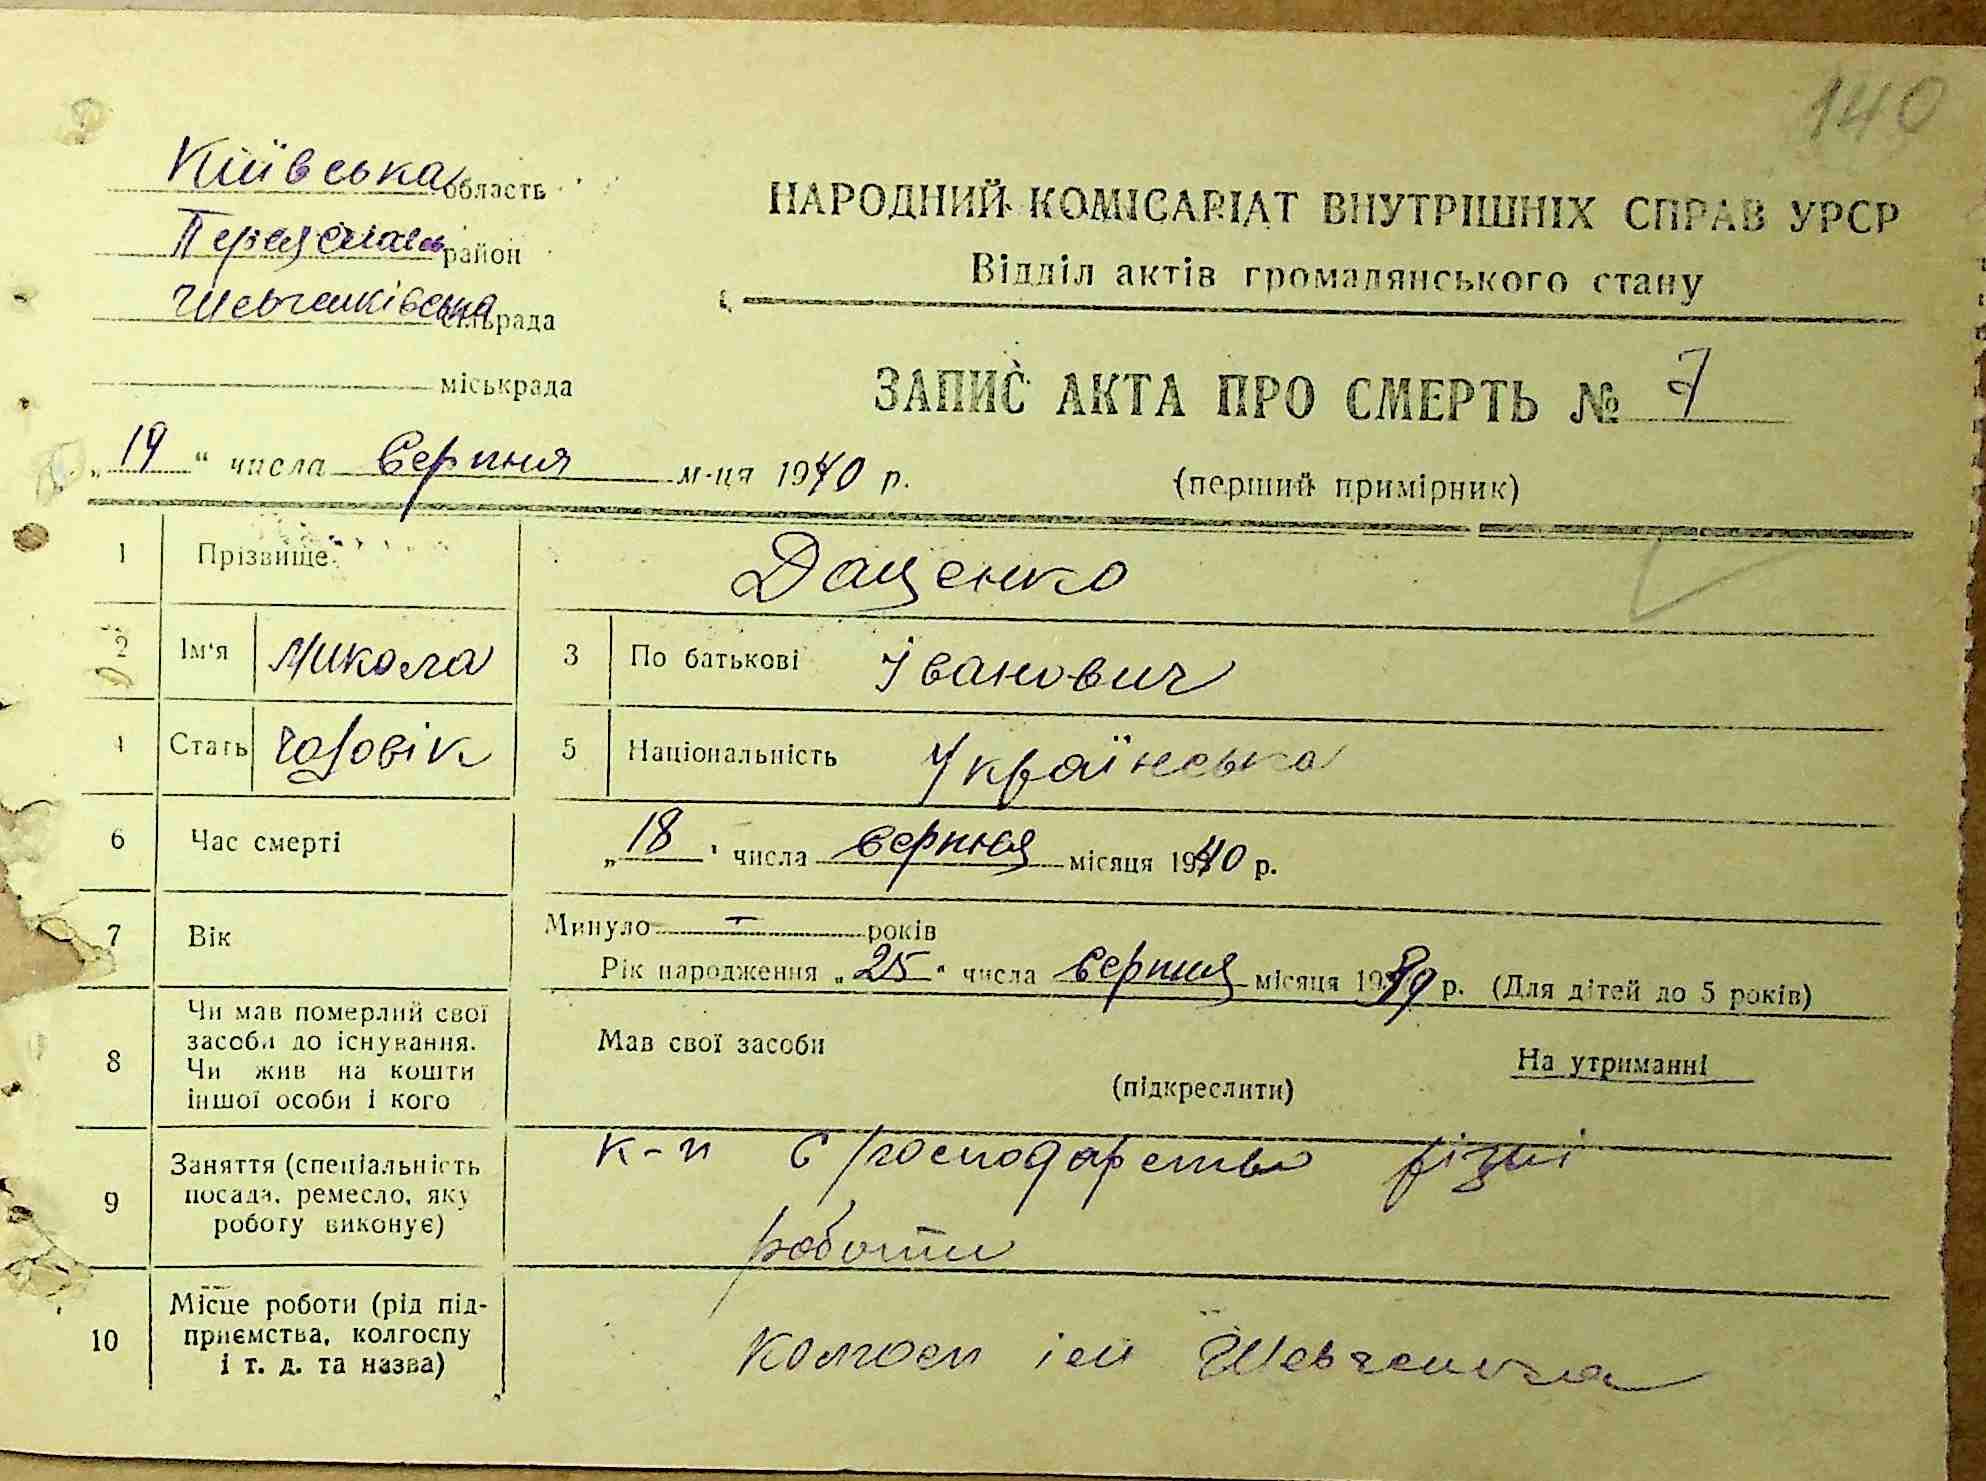 140
Київська область
Переяслав район
Шевченківська сільрада
міськрада
НАРОДНИЙ КОМІСАРІАТ ВНУТРІШНІХ СПРАВ УРСР
Відділ актів громадянського стану
ЗАПИС АКТА ПРО СМЕРТЬ № 7
(перший примірник)
„19“ числа Серпня м-ця 1940 р.
1 Прізвище Даценко
2 Ім'я Микола 3 По батькові Іванович
4 Стать Чоловік 5 Національність Українська
6 Час смерті „18“ числа серпня місяця 1940 р.
7 Вік Минуло — років
Рік народження „25“ числа Серпня місяця 1939 р. (Для дітей до 5 років)
8 Чи мав померлий свої засоби до існування. Чи жив на кошти іншої особи і кого
Мав свої засоби
(підкреслити)
На утриманні
9 Заняття (спеціальність посада, ремесло, яку роботу виконує)
к-п С господарство різні
роботи
10 Місце роботи (рід підприємства, колгоспу і т. д. та назва)
Колгосп ім Шевченка